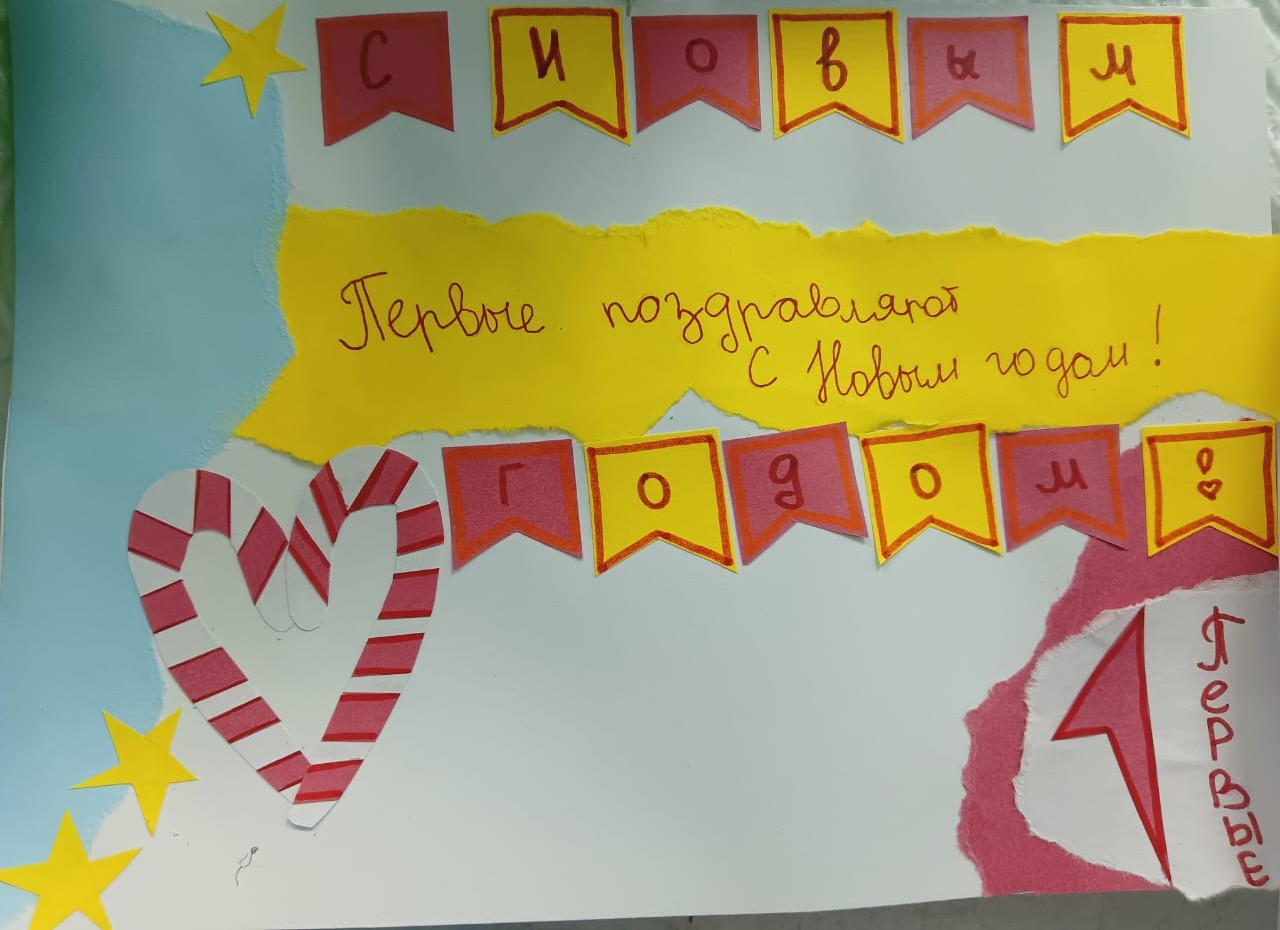 С Новым
Первые поздравляют
с Новым годом!
годом!
Первые